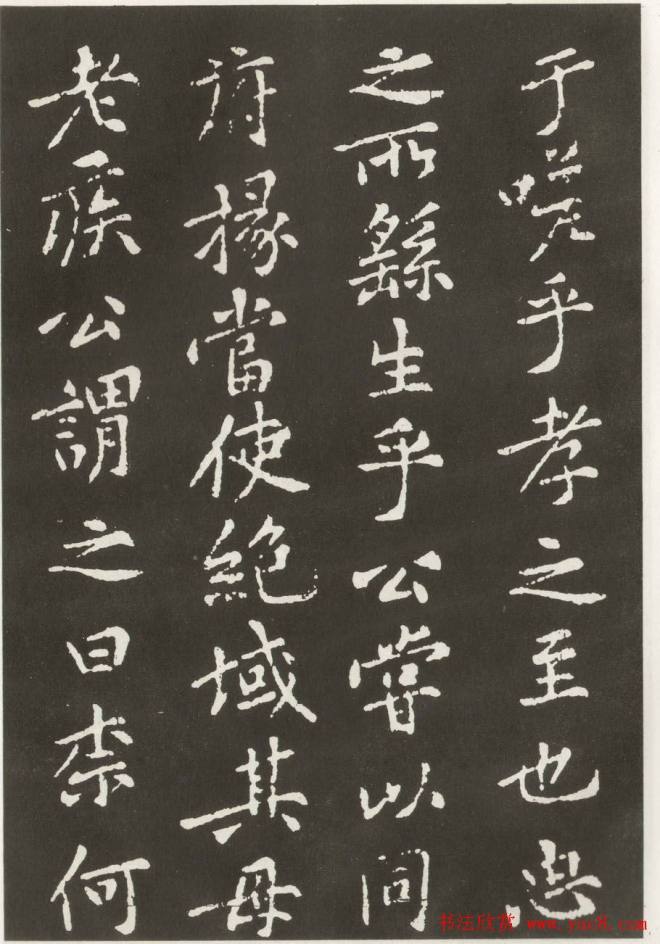 于嗟乎孝之至也忠
之所繇生乎公嘗以問
府掾當使絶域其母
老疾公謂之曰柰何
书法欣赏 www.yac8.com